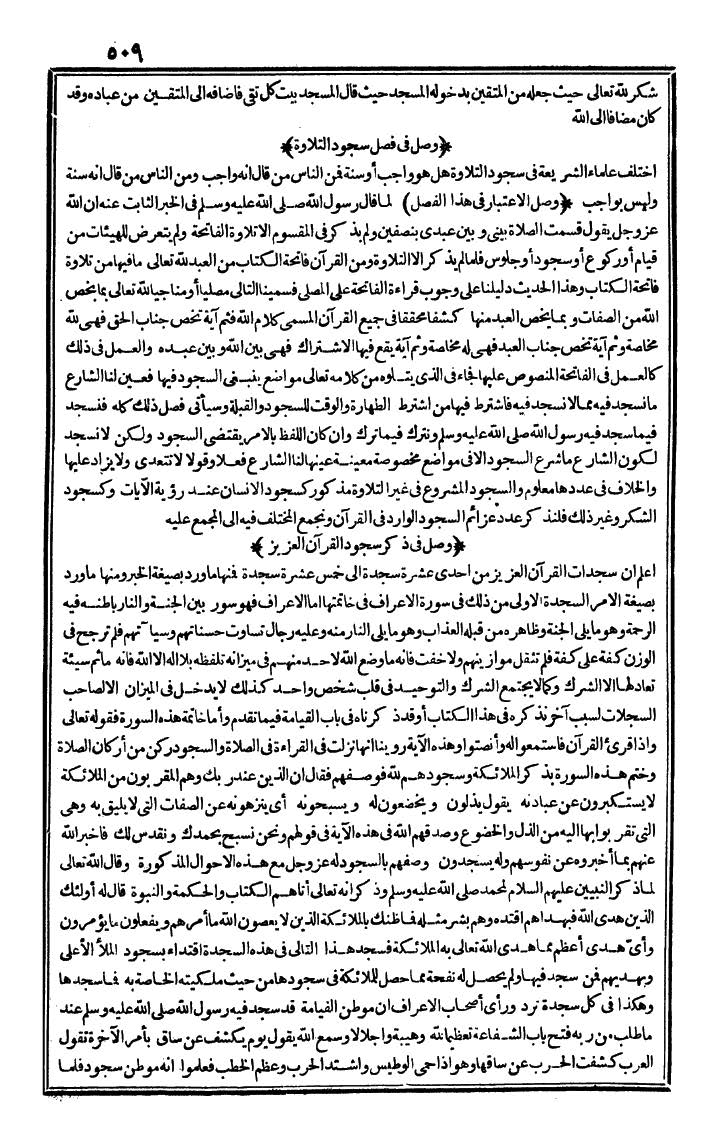 ٥٠٩
شكر لله تعالى حيث جعله من المتقين بدخوله المسجد حيث قال المسجد بيت كل تقى فاضافه الى المتقين من عباده وقد
كان مضافا الى الله
﴿وصل فى فصل سجود التلاوة﴾
اختلف علماء الشريعة فى سجود التلاوة هل هو واجب أو سنة فمن الناس من قال انه واجب ومن الناس من قال انه سنة
وليس بواجب ﴿وصل الاعتبار فى هذا الفصل﴾ لما قال رسول الله صلى الله عليه وسلم فى الخبر الثابت عنه ان الله
عز وجل يقول قسمت الصلاة بينى وبين عبدى بنصفين ولم يذكر فى المقسوم الا تلاوة الفاتحة ولم يتعرض للهيئات من
قيام أو ركوع أو سجود أو جلوس فلما لم يذكر الا التلاوة ومن القرآن فاتحة الكتاب من العبد لله تعالى مافيها من تلاوة
فاتحة الكتاب وهذا الحديث دليلنا على وجوب قراءة الفاتحة على المصلى فسمينا التالى مصليا أو مناجيا لله تعالى بما يخص
الله من الصفات و بما يخص العبد منها كشفا محققا فى جميع القرآن المسمى كلام الله فثم آية تخص جناب الحق فهى لله
مخاصة وثم آية تخص جناب العبد فهى له مخاصة وثم آية يقع فيها الاشتراك فهى بين الله وبين عبده والعمل فى ذلك
كالعمل فى الفاتحة المنصوص عليها فجاء فى الذى يتلوه من كلامه تعالى مواضع ينبغى السجود فيها فعين لنا الشارع
ما نسجد فيه مما لا نسجد فيه فاشترط فيها من اشترط الطهارة والوقت للسجود والقبلة وسيأتى فصل ذلك كله فنسجد
فيما سجد فيه رسول الله صلى الله عليه وسلم ونترك فيما ترك وان كان اللفظ بالامر يقتضى السجود ولكن لا نسجد
لكون الشارع ما شرع السجود الا فى مواضع مخصوصة معينة عينها لنا الشارع فعلا وقولا لا تتعدى ولا يزاد عليها
والخلاف فى عددها معلوم والسجود المشروع فى غير التلاوة مذكور كسجود الانسان عند رؤية الآيات وكسجود
الشكر وغير ذلك فلنذكر عدد عزائم السجود الوارد فى القرآن ونجمع المختلف فيه الى المجمع عليه
﴿وصل فى ذكر سجود القرآن العزيز﴾
اعلم ان سجدات القرآن العزيز من احدى عشرة سجدة الى خمس عشرة سجدة فمنها ما ورد بصيغة الخبر ومنها ما ورد
بصيغة الامر السجدة الاولى من ذلك فى سورة الاعراف فى خاتمتها اما الاعراف فهو سور بين الجنة والنار باطنه فيه
الرحمة وهو ما يلى الجنة وظاهره من قبله العذاب وهو ما يلى النار منه وعليه رجال تساوت حسناتهم وسيآتهم فلم ترجح فى
الوزن كفة على كفة فلم تثقل موازينهم ولا خفت فانه ما وضع الله لاحد منهم فى ميزانه تلفظه بلا اله الا الله فانه ما ثم سيئة
تعادلها الا الشرك وكما لا يجتمع الشرك والتوحيد فى قلب شخص واحد كذلك لا يدخل فى الميزان الا لصاحب
السجلات لسبب آخر نذكره فى هذا الكتاب أو قد ذكرناه فى باب القيامة فيما تقدم وأما خاتمة هذه السورة فقوله تعالى
واذا قرئ القرآن فاستمعوا له وأنصتوا وهذه الآية روينا انها نزلت فى القراءة فى الصلاة والسجود ركن من أركان الصلاة
وختم هذه السورة بذكر الملائكة وسجودهم لله فوصفهم فقال ان الذين عند ربك وهم المقربون من الملائكة
لا يستكبرون عن عبادته يقول يذلون و يخضعون له و يسبحونه أى ينزهونه عن الصفات التى لا يليق به وهى
التى تقربوا بها اليه من الذل والخضوع وصدقهم الله فى هذه الآية فى قولهم ونحن نسبح بحمدك ونقدس لك فاخبر الله
عنهم بما أخبروه عن نفوسهم وله يسجدون وصفهم بالسجود له عز وجل مع هذه الاحوال المذكورة وقال الله تعالى
لما ذكر النبيين عليهم السلام لمحمد صلى الله عليه وسلم وذكر انه تعالى أتاهم الكتاب والحكمة والنبوة قال له أولئك
الذين هدى الله فبهداهم اقتده وهم بشر مثله فما ظنك بالملائكة الذين لا يعصون الله ما أمرهم ويفعلون ما يؤمرون
وأى هدى أعظم مما هدى الله تعالى به الملائكة فسجد هذا التالى فى هذه السجدة اقتداء بسجود الملأ الأعلى
وبهديهم فمن سجد فيها ولم يحصل له نفحة مما حصل للملائكة فى سجودها من حيث ملكيته الخاصة به فما سجدها
وهكذا فى كل سجدة ترد ورأى أصحاب الاعراف ان موطن القيامة قد سجد فيه رسول الله صلى الله عليه وسلم عند
ما طلب من ربه فتح باب الشفاعة تعظيما لله وهيبة واجلالا وسمع الله يقول يوم يكشف عن ساق بأمر الآخرة تقول
العرب كشفت الحرب عن ساقها وهو اذا حمى الوطيس واشتد الحرب وعظم الخطب فعلموا انه موطن سجود فلما